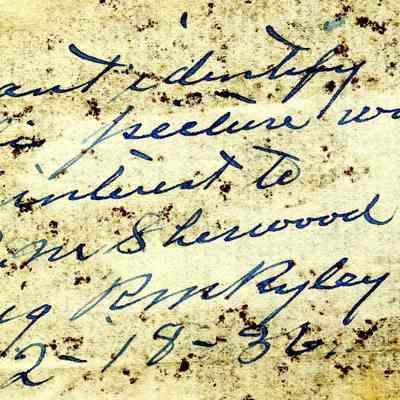 ant identify
picture w
interest to
m Sherwood
RMcRyley
2-18-36